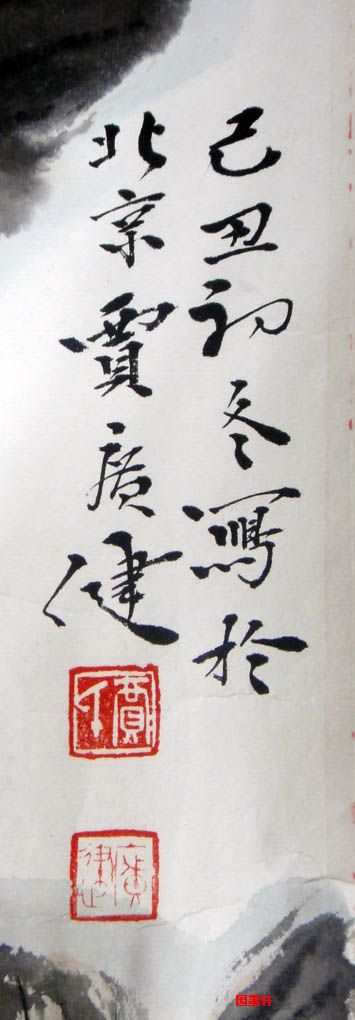 己丑初冬寫於
北京賈廣健
賈
廣健
国墨轩